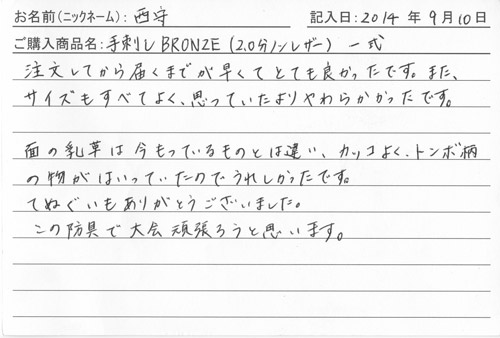 お名前(ニックネーム): 西守 記入日: 2014 年 9月10日
ご購入商品名: 手刺しBRONZE (2.0分ノンレザー) 一式
注文してから届くまでが早くてとても良かったです。また、
サイズもすべてよく、思っていたよりやわらかかったです。
面の乳革は今もっているものとは違い、カッコよく、トンボ柄
の物がはいっていたのでうれしかったです。
てぬぐいもありがとうございました。
この防具で大会頑張ろうと思います。